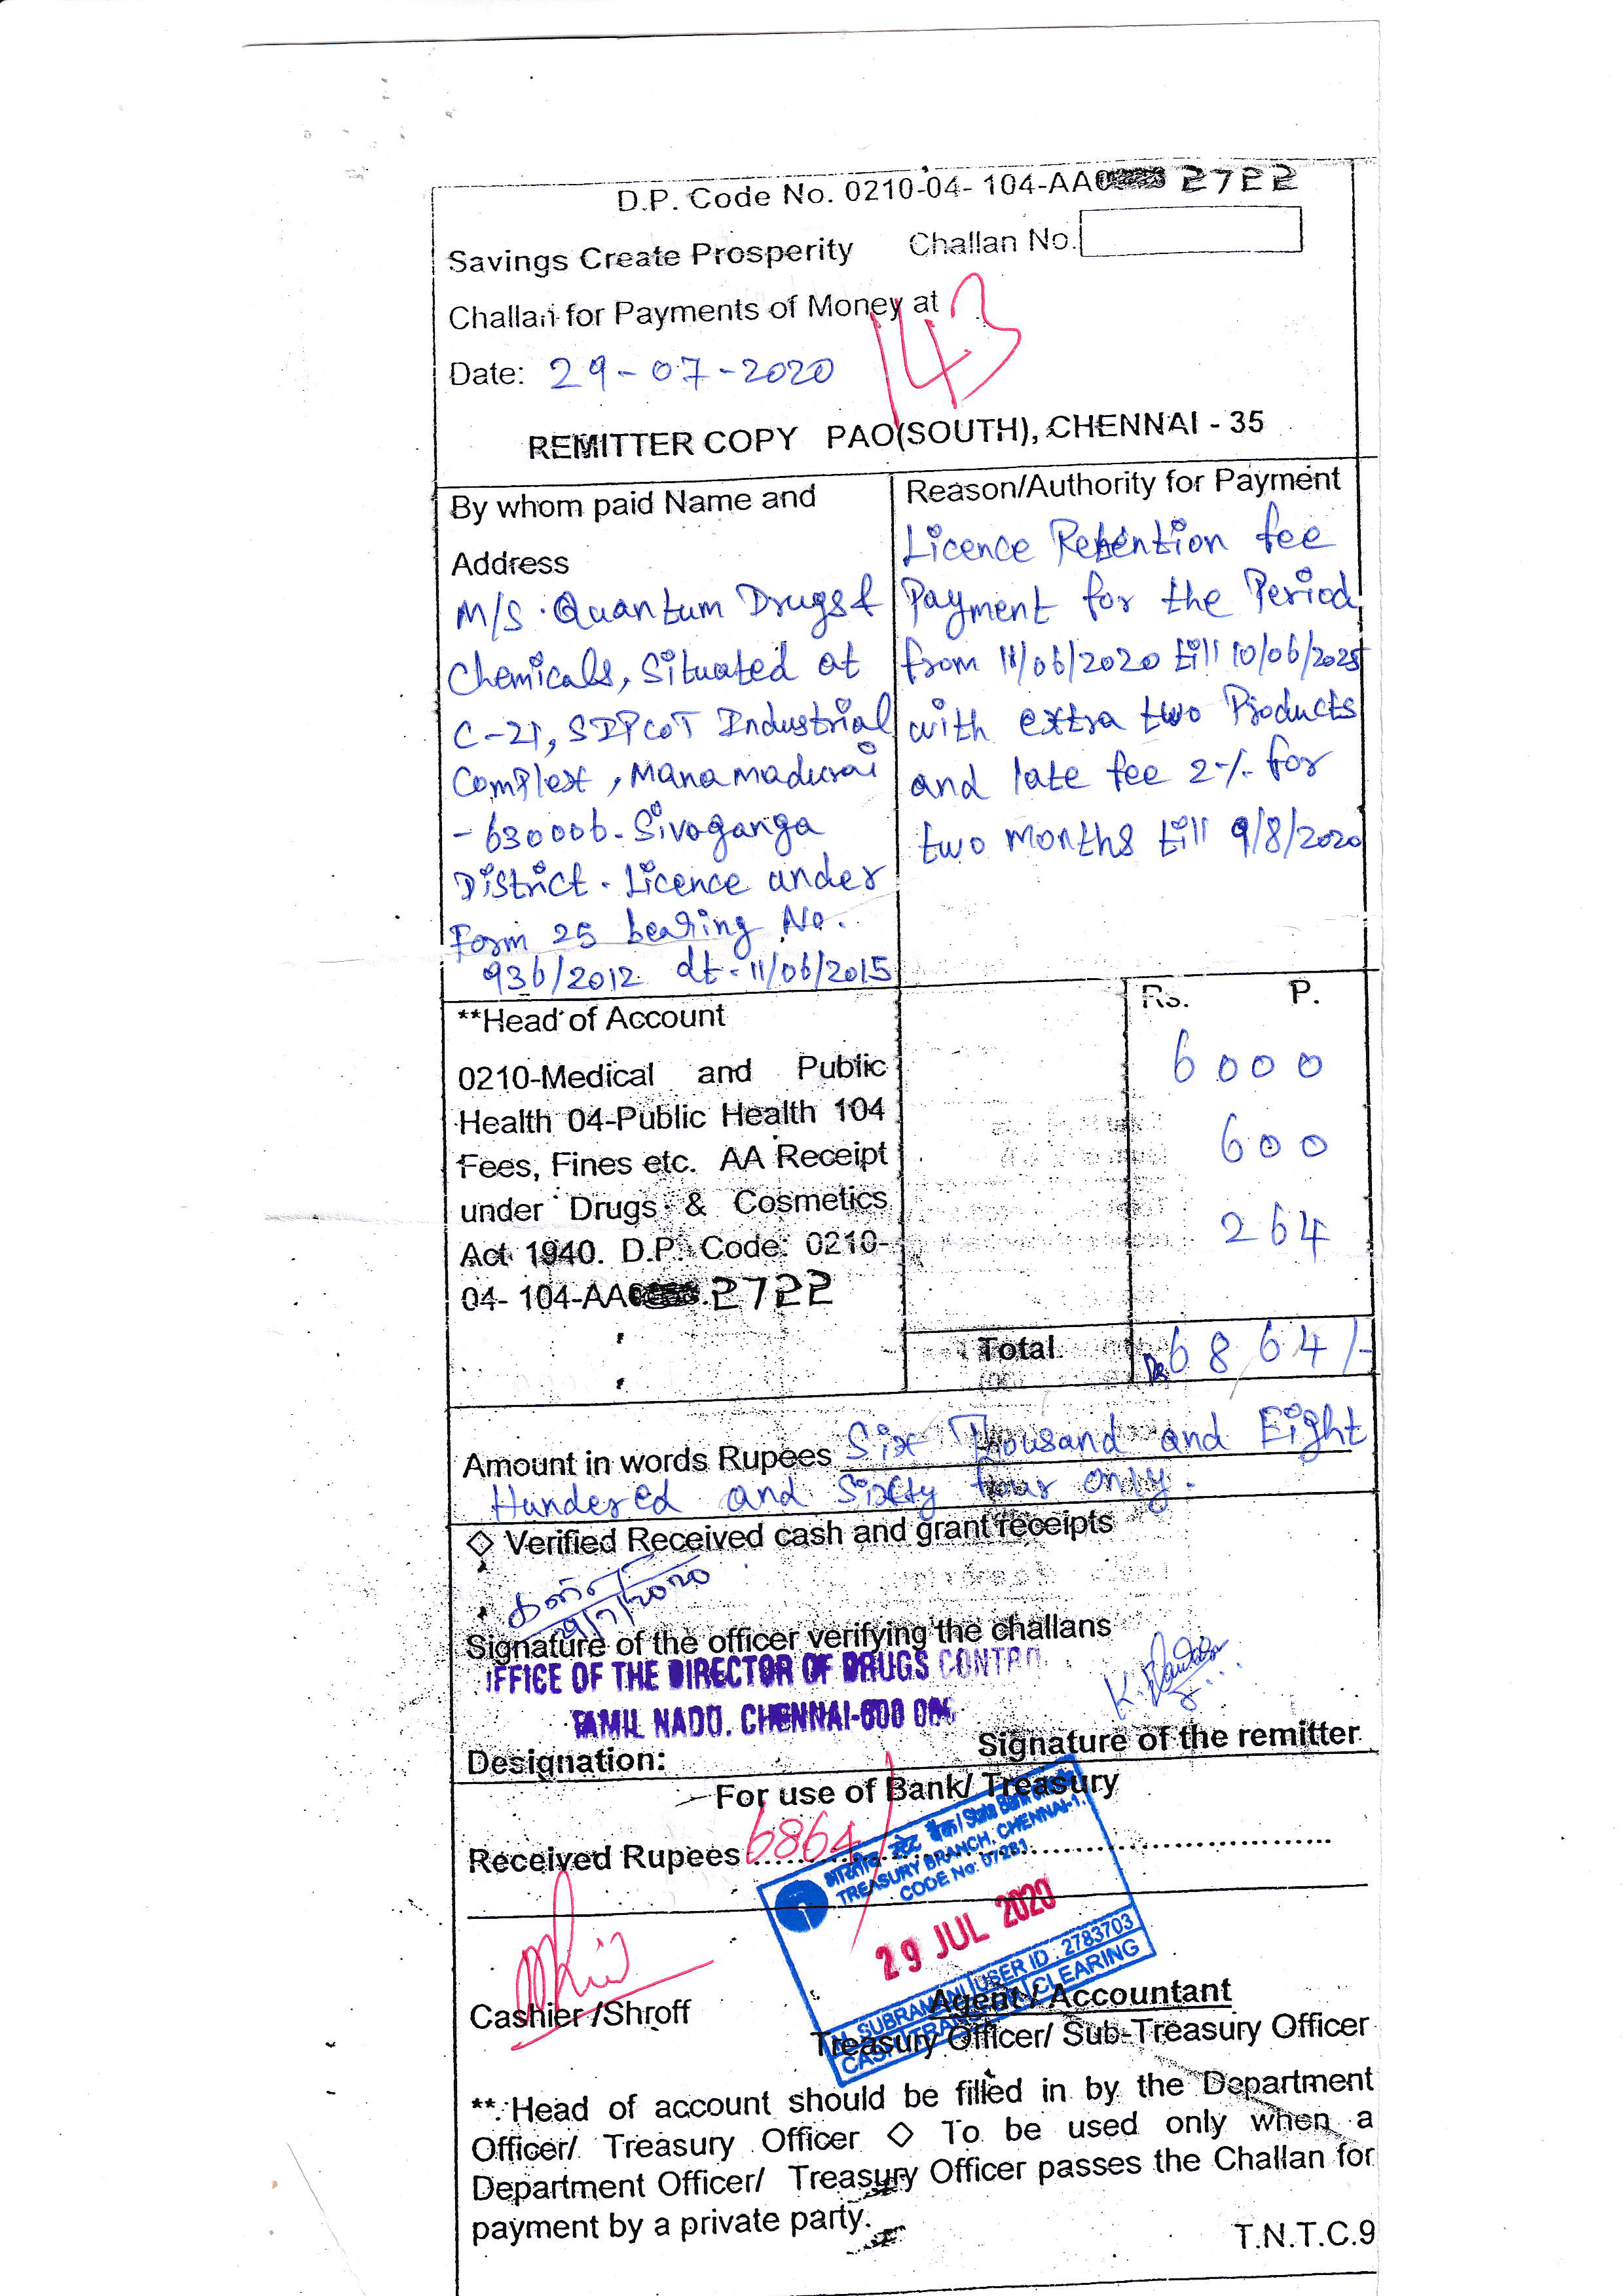 D.P. Code No. 0210-04- 104-AA 2722
Savings Create Prosperity Challan No.
Challan for Payments of Money at
143
Date: 29-07-2020
REMITTER COPY PAO(SOUTH), CHENNAI - 35
By whom paid Name and
Address
M/s. Quantum Drugs &
Chemicals, Situated at
C-21, SIPCOT Industrial
Complex, Manamadurai
- 630006. Sivaganga
District. Licence under
Form 25 bearing No.
936/2012 dt - 11/06/2015
Reason/Authority for Payment
Licence Retention fee
Payment for the Period
from 11/06/2020 till 10/06/2025
with extra two Products
and late fee 2% for
two months till 9/8/2020
**Head of Account
0210-Medical and Public
Health 04-Public Health 104
Fees, Fines etc. AA Receipt
under Drugs & Cosmetics
Act 1940. D.P. Code: 0210-
04- 104-AA 2722
Rs. P.
6000
600
264
Total Rs 6864/-
Amount in words Rupees Six Thousand and Eight
Hundered and Sixty four only.
◇ Verified Received cash and grant receipts
29/7/2020
Signature of the officer verifying the challans
FFICE OF THE DIRECTOR OF DRUGS CONTRO
TAMIL NADU. CHENNAI-600 006
Signature of the remitter
Designation:
For use of Bank/ Treasury
Received Rupees 6864/
भारतीय स्टेट बैंक / State Bank
TREASURY BRANCH, CHENNAI-1.
CODE No: 07281
29 JUL 2020
N. SUBRAMANI USER ID : 2783703
CLEARING
Cashier /Shroff
Agent / Accountant
Treasury Officer/ Sub-Treasury Officer
** Head of account should be filled in by the Department
Officer/ Treasury Officer ◇ To be used only when a
Department Officer/ Treasury Officer passes the Challan for
payment by a private party.
T.N.T.C.9